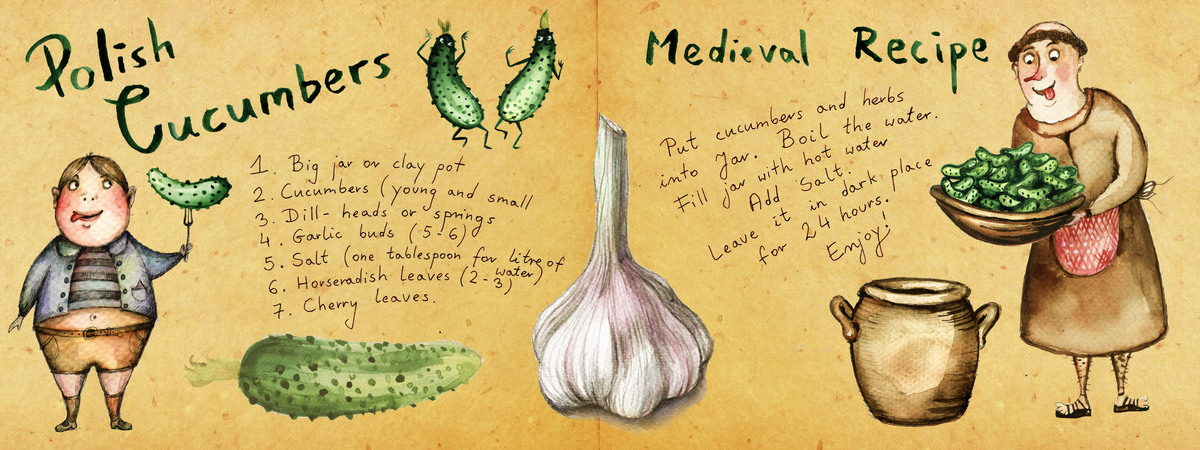 Polish
Cucumbers
1. Big jar or clay pot
2. Cucumbers (young and small
3. Dill- heads or springs
4. Garlic buds (5-6)
5. Salt (one tablespoon for litre of
water)
6. Horseradish leaves (2-3)
7. Cherry leaves.
Medieval Recipe
Put cucumbers and herbs
into Jar. Boil the water.
Fill jar with hot water
Add Salt.
Leave it in dark place
for 24 hours.
Enjoy!